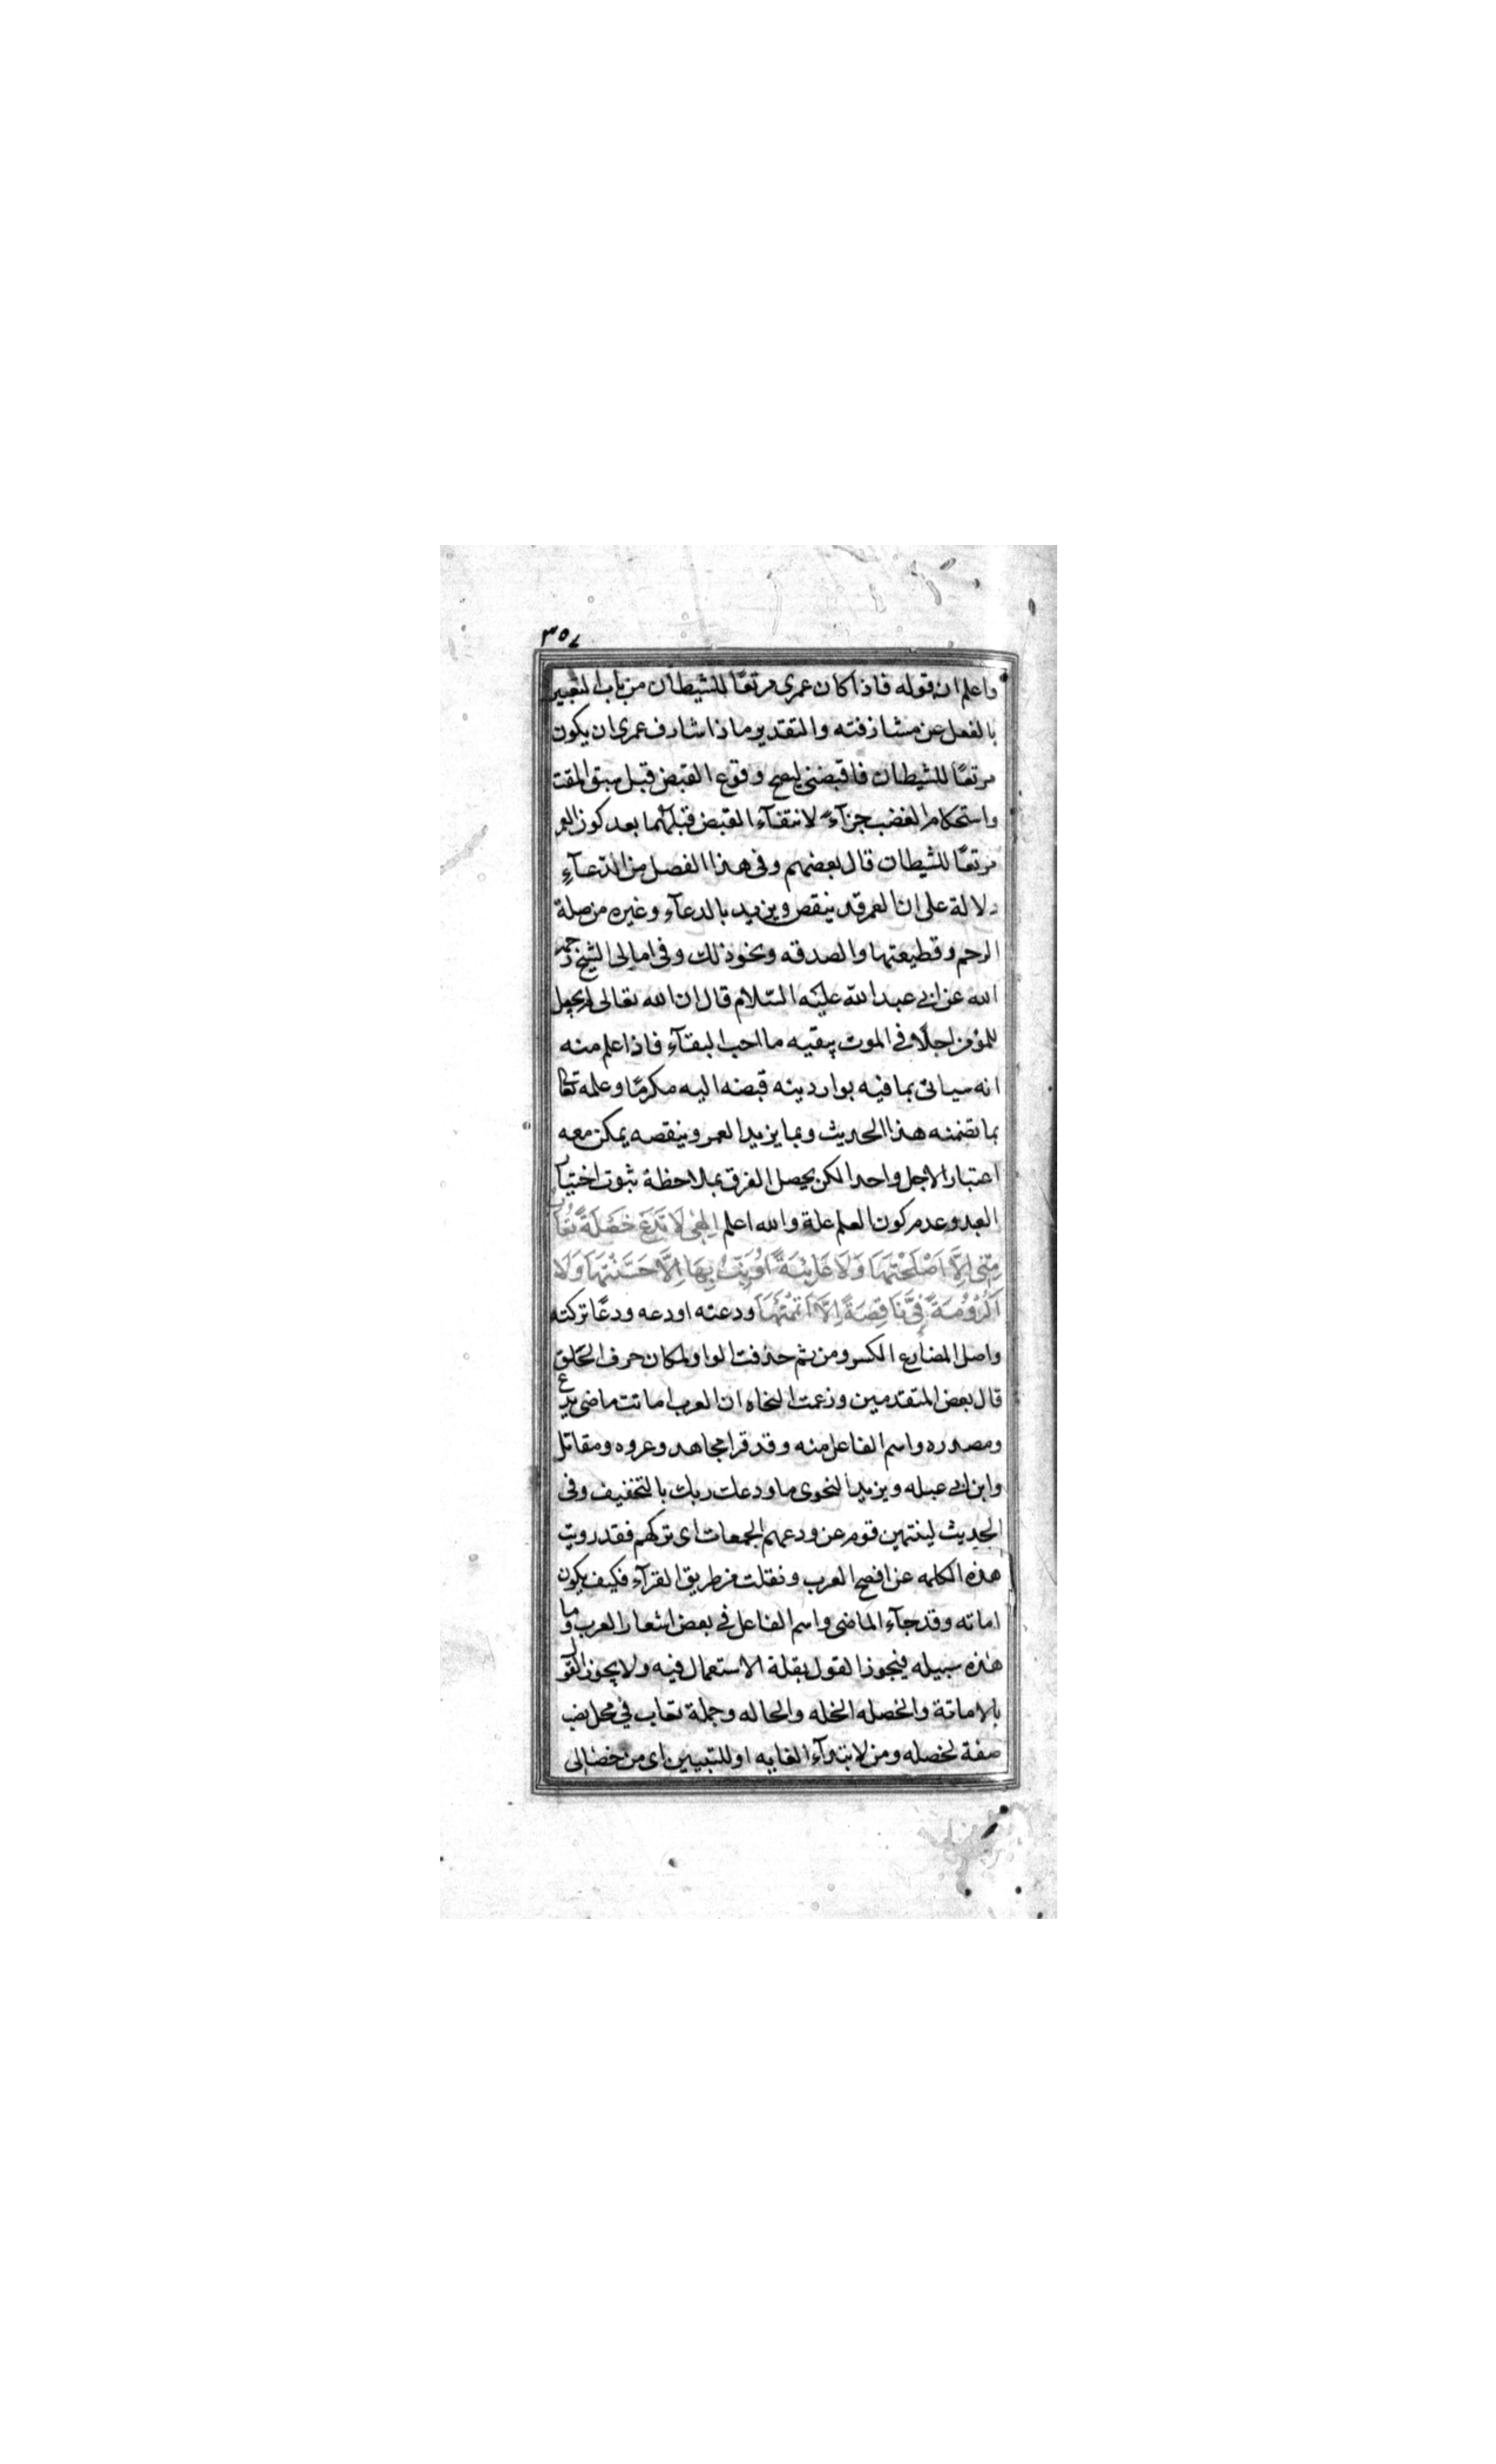 ٣٥٤
واعلم ان قوله فاذا كان عمرى مرتعًا للشيطان من باب التعبير
بالفعل عن مشارفته والتقدير ماذا شارف عمرى ان يكون
مرتعًا للشيطان فاقبضنى ليصح وقوع القبض قبل سبق المقت
واستحكام الغضب جزآءً لانتفآء القبض قبلهما بعد كون العمر
مرتعًا للشيطان قال بعضهم وفى هذا الفصل من الدّعآءِ
دلالة على ان العمر قد ينقص ويزيد بالدعآء وغيره من صلة
الرحم وقطيعتها والصدقه ونحو ذلك وفى امالى الشيخ رحمه
الله عن ابى عبد الله عليه السّلام قال ان الله تعالى لم يجعل
للمؤمن اجلًا فى الموت يبقيه ما احب البقآء فاذا علم منه
انه سياتى بما فيه بوار دينه قبضه اليه مكرمًا وعلمه تعالى
بما تضمنه هذا الحديث وبما يزيد العمر وينقصه يمكن معه
اعتبار الاجل واحدا لكن يحصل الفرق بملاحظة ثبوت اختيار
العبد وعدم كون العلم علة والله اعلم اِلهى لَا تَدَعْ خَصْلَةً تُعَابُ
مِنّى اِلَّا اَصْلَحْتَهَا وَلَا عَائِبَةً اُوَنَّبُ بِهَا اِلَّا حَسَّنْتَهَا وَلَا
اُكْرُوْمَةً فِىَّ نَاقِصَةً اِلَّا اَتْمَمْتَهَا ودعته اودعه ودعًا تركته
واصل المضارع الكسر ومن ثم حذفت الواو لمكان حرف الحلق
قال بعض المتقدمين وزعمت النحاه ان العرب اماتت ماضى يدع
ومصدره واسم الفاعل منه وقد قرا مجاهد وعروه ومقاتل
وابن ابى عبله ويزيد النحوى ما ودعك ربك بالتخفيف وفى
الحديث لينتهين قوم عن ودعهم الجمعات اى تركهم فقد رويت
هذه الكلمه عن افصح العرب ونقلت من طريق القرآء فكيف يكون
اماته وقد جآء الماضى واسم الفاعل فى بعض اشعار العرب وما
هذه سبيله فيجوز القول بقلة الاستعمال فيه ولا يجوز القول
بالاماتة والخصله الخله والحاله وجملة تعاب فى محل نصب
صفة لخصله ومن لابتدآء الغايه او للتبيين اى من خصالى